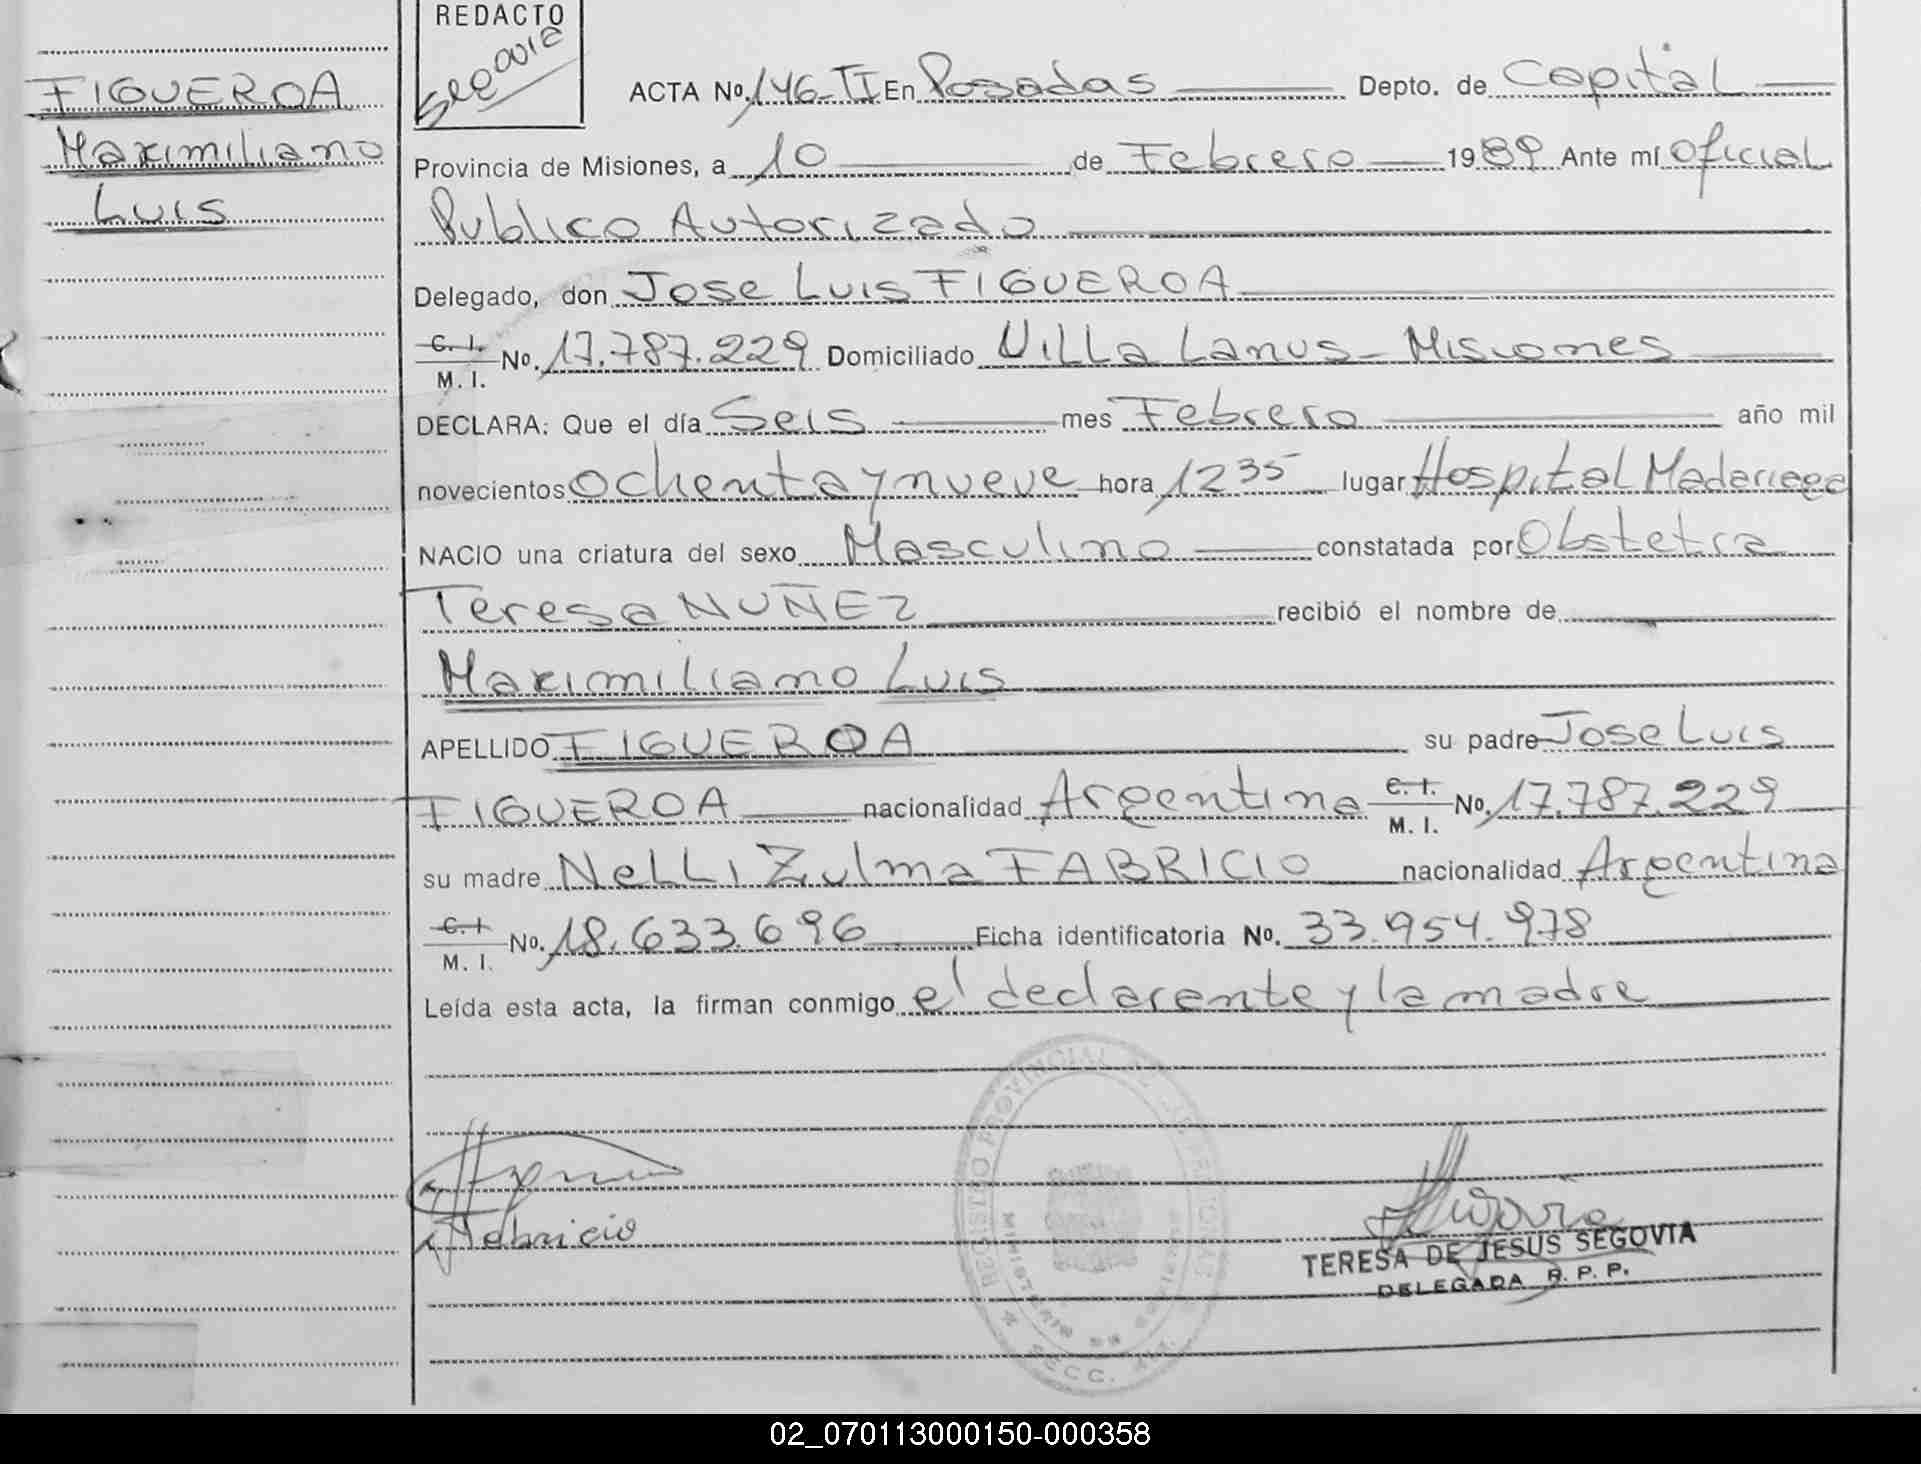 REDACTO
Segovia
FIGUEROA
Maximiliano
Luis
ACTA No. 146-II En Posadas Depto. de Capital
Provincia de Misiones, a 10 de Febrero 1989 Ante mí Oficial
Publico Autorizado
Delegado, don Jose Luis FIGUEROA
C. I. M. I. No. 17.787.229 Domiciliado Villa Lanus - Misiones
DECLARA: Que el día Seis mes Febrero año mil
novecientos ochenta y nueve hora 12 35 lugar Hospital Madariaga
NACIO una criatura del sexo Masculino constatada por Obstetra
Teresa NUÑEZ recibió el nombre de
Maximiliano Luis
APELLIDO FIGUEROA su padre Jose Luis
FIGUEROA nacionalidad Argentina C. I. M. I. No. 17.787.229
su madre NeLLi Zulma FABRICIO nacionalidad Argentina
C. I. M. I. No. 18.633.696 Ficha identificatoria No. 33.954.978
Leída esta acta, la firman conmigo el declarente y la madre
Fabricio
Segovia
REGISTRO PROVINCIAL DE LAS PERSONAS
MINISTERIO DE
SECC.
TERESA DE JESUS SEGOVIA
DELEGADA R. P. P.
02_070113000150-000358